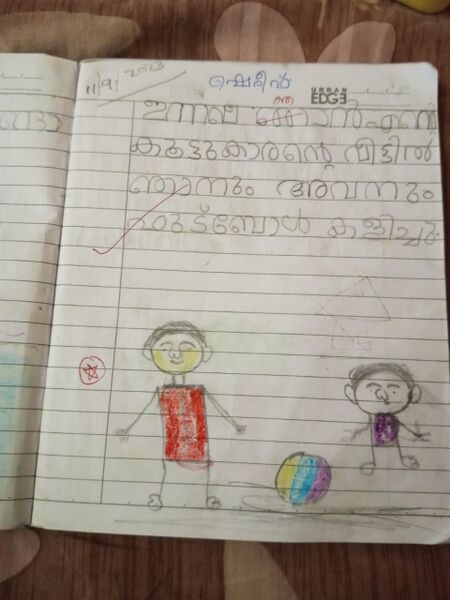 11/9/2023 ഷെരീഫ് URBAN EDGE
ഞ
ഇന്നലെ ഞാൻ എന്റെ
കൂട്ടുകാരന്റെ വീട്ടിൽ
ഞാനും അവനും
ഫുട്ബോൾ കളിച്ചു.